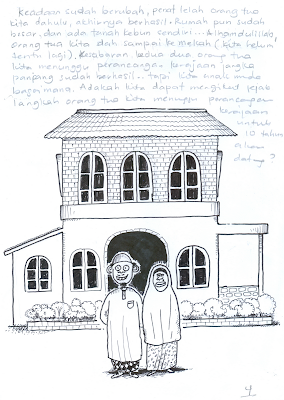 Keadaan sudah berubah, penat lelah orang tua
kita dahulu, akhirnya berhasil. Rumah pun sudah
besar, dan ada tanah kebun sendiri... Alhamdulillah,
orang tua kita dah sampai ke Mekah (kita belum
lagi). Kesabaran kedua dua orang tua
kita menunggu perancangan kerajaan jangka
panjang sudah berhasil.. tapi kita anak muda
bagaimana. Adakah kita dapat mengikut jejak
langkah orang tua kita menunggu perancangan
kerajaan
untuk
10 tahun
akan
datang?
4